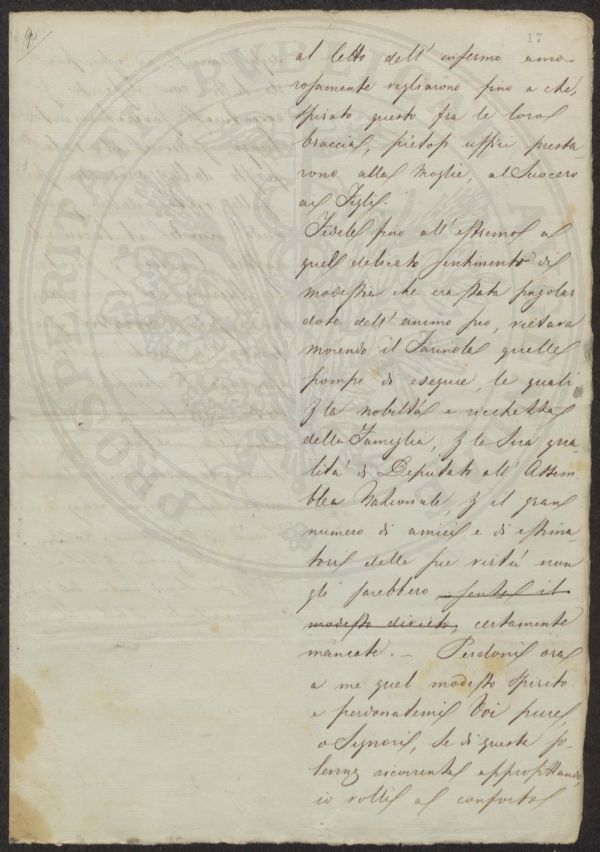 9.
17
al letto dell' infermo amo-
rosamente vegliarono sino a che,
spirato questo fra le loro
braccia, pietosi uffici presta-
rono alla Moglie, al Suocero
ai Figli.
Fedele sino all' estremo a
quel delicato sentimento di
modestia che era stata singolar
dote dell' animo suo, vietava
morendo il Farinola quelle
pompe di esequie, le quali
p la nobiltà e ricchezza
della Famiglia, p la sua qua-
lità di Deputato all' Assem-
blea Nazionale, p il gran
numero di amici e di estima-
tori delle sue virtù non
gli sarebbero senza il
modesto divieto, certamente
mancate. — Perdoni ora
a me quel modesto spirito
e perdonatemi Voi pure,
o Signori, se di questa so-
lenne ricorrenza approfittando,
io volli a conforto